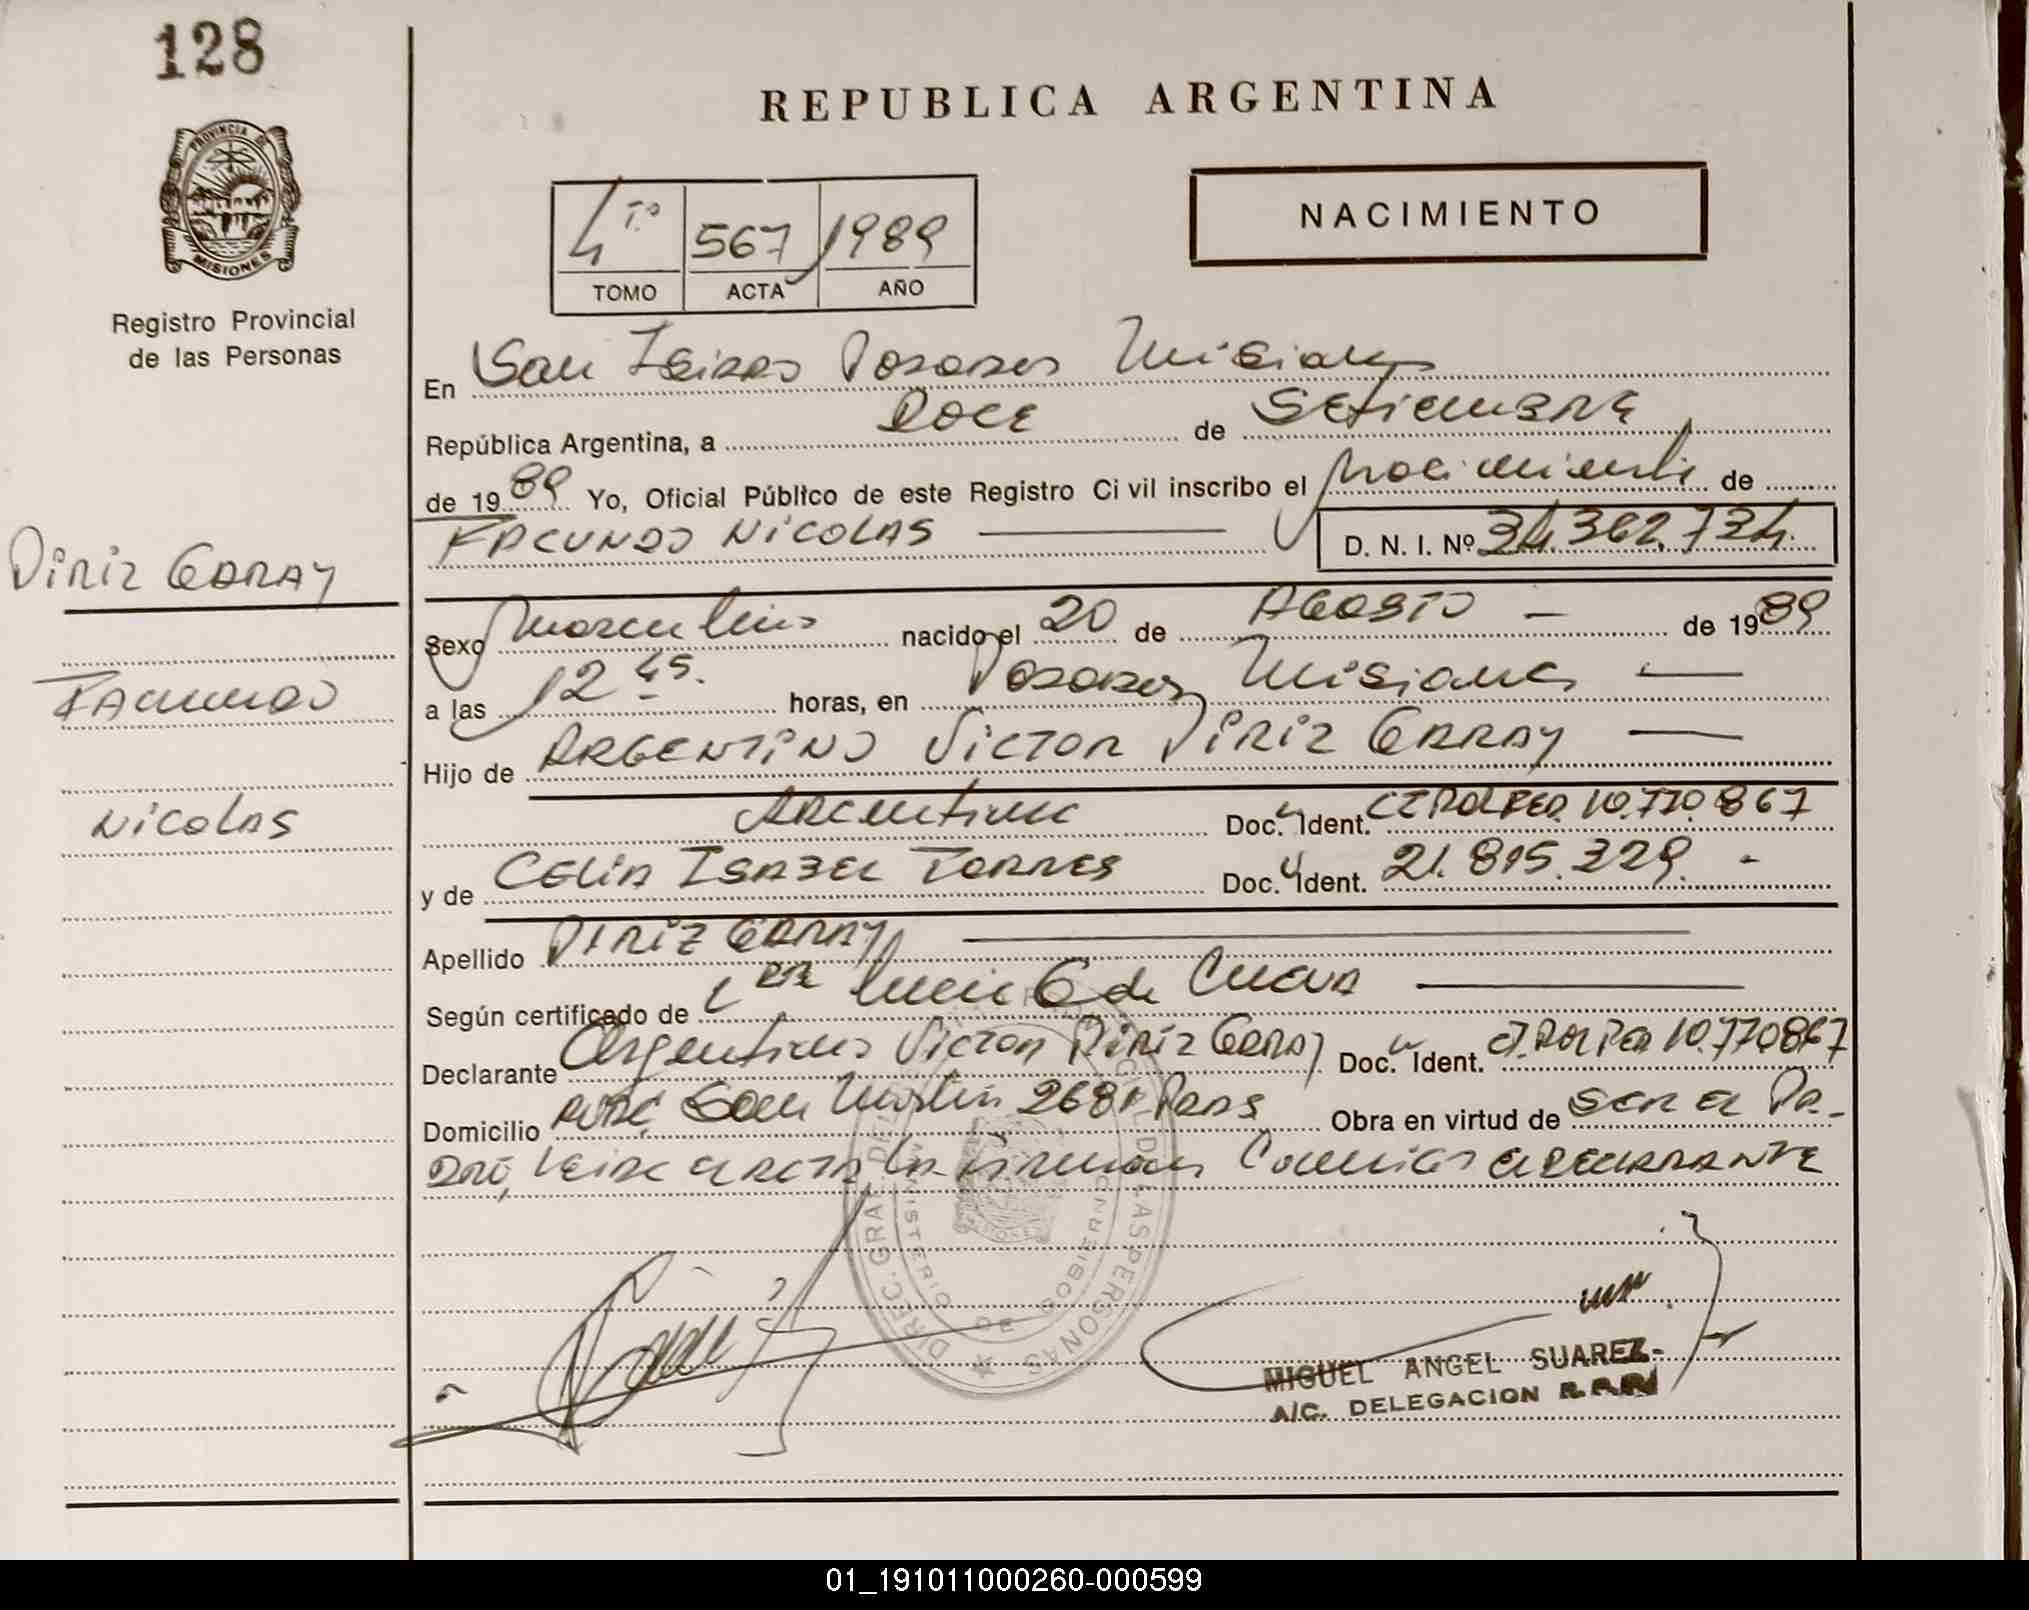 128
REPUBLICA ARGENTINA
PROVINCIA DE
MISIONES
Registro Provincial
de las Personas
4 to 567 1989
TOMO ACTA AÑO
NACIMIENTO
En San Isidro Posadas Misiones
República Argentina, a Doce de Setiembre
de 1989 Yo, Oficial Público de este Registro Civil inscribo el Nacimiento de
FACUNDO NICOLAS D. N. I. Nº 34.362.734.
Piriz Garay
Facundo
Nicolas
Sexo Masculino nacido el 20 de AGOSTO de 1989
a las 12 45. horas, en Posadas Misiones
Hijo de ARGENTINO VICTOR PIRIZ GARAY
Argentino Doc. Ident. CI POL FED. 10.770.867
y de CELIA ISABEL TORRES Doc. Ident. 21.815.329. -
Apellido PIRIZ GARAY
Según certificado de G de Cueva
Declarante Argentino Victor Piriz Garay Doc. Ident. CI. Pol Fed 10.770867
Domicilio San Martin 2681 Pdas Obra en virtud de SER EL PA-
DRE, Leida el acta la firman conmigo el DECLARANTE
DIREC. GRAL. DEL DE LAS PERSONAS
MINISTERIO DE GOBIERNO
MIGUEL ANGEL SUAREZ
A/C. DELEGACION
01_191011000260-000599